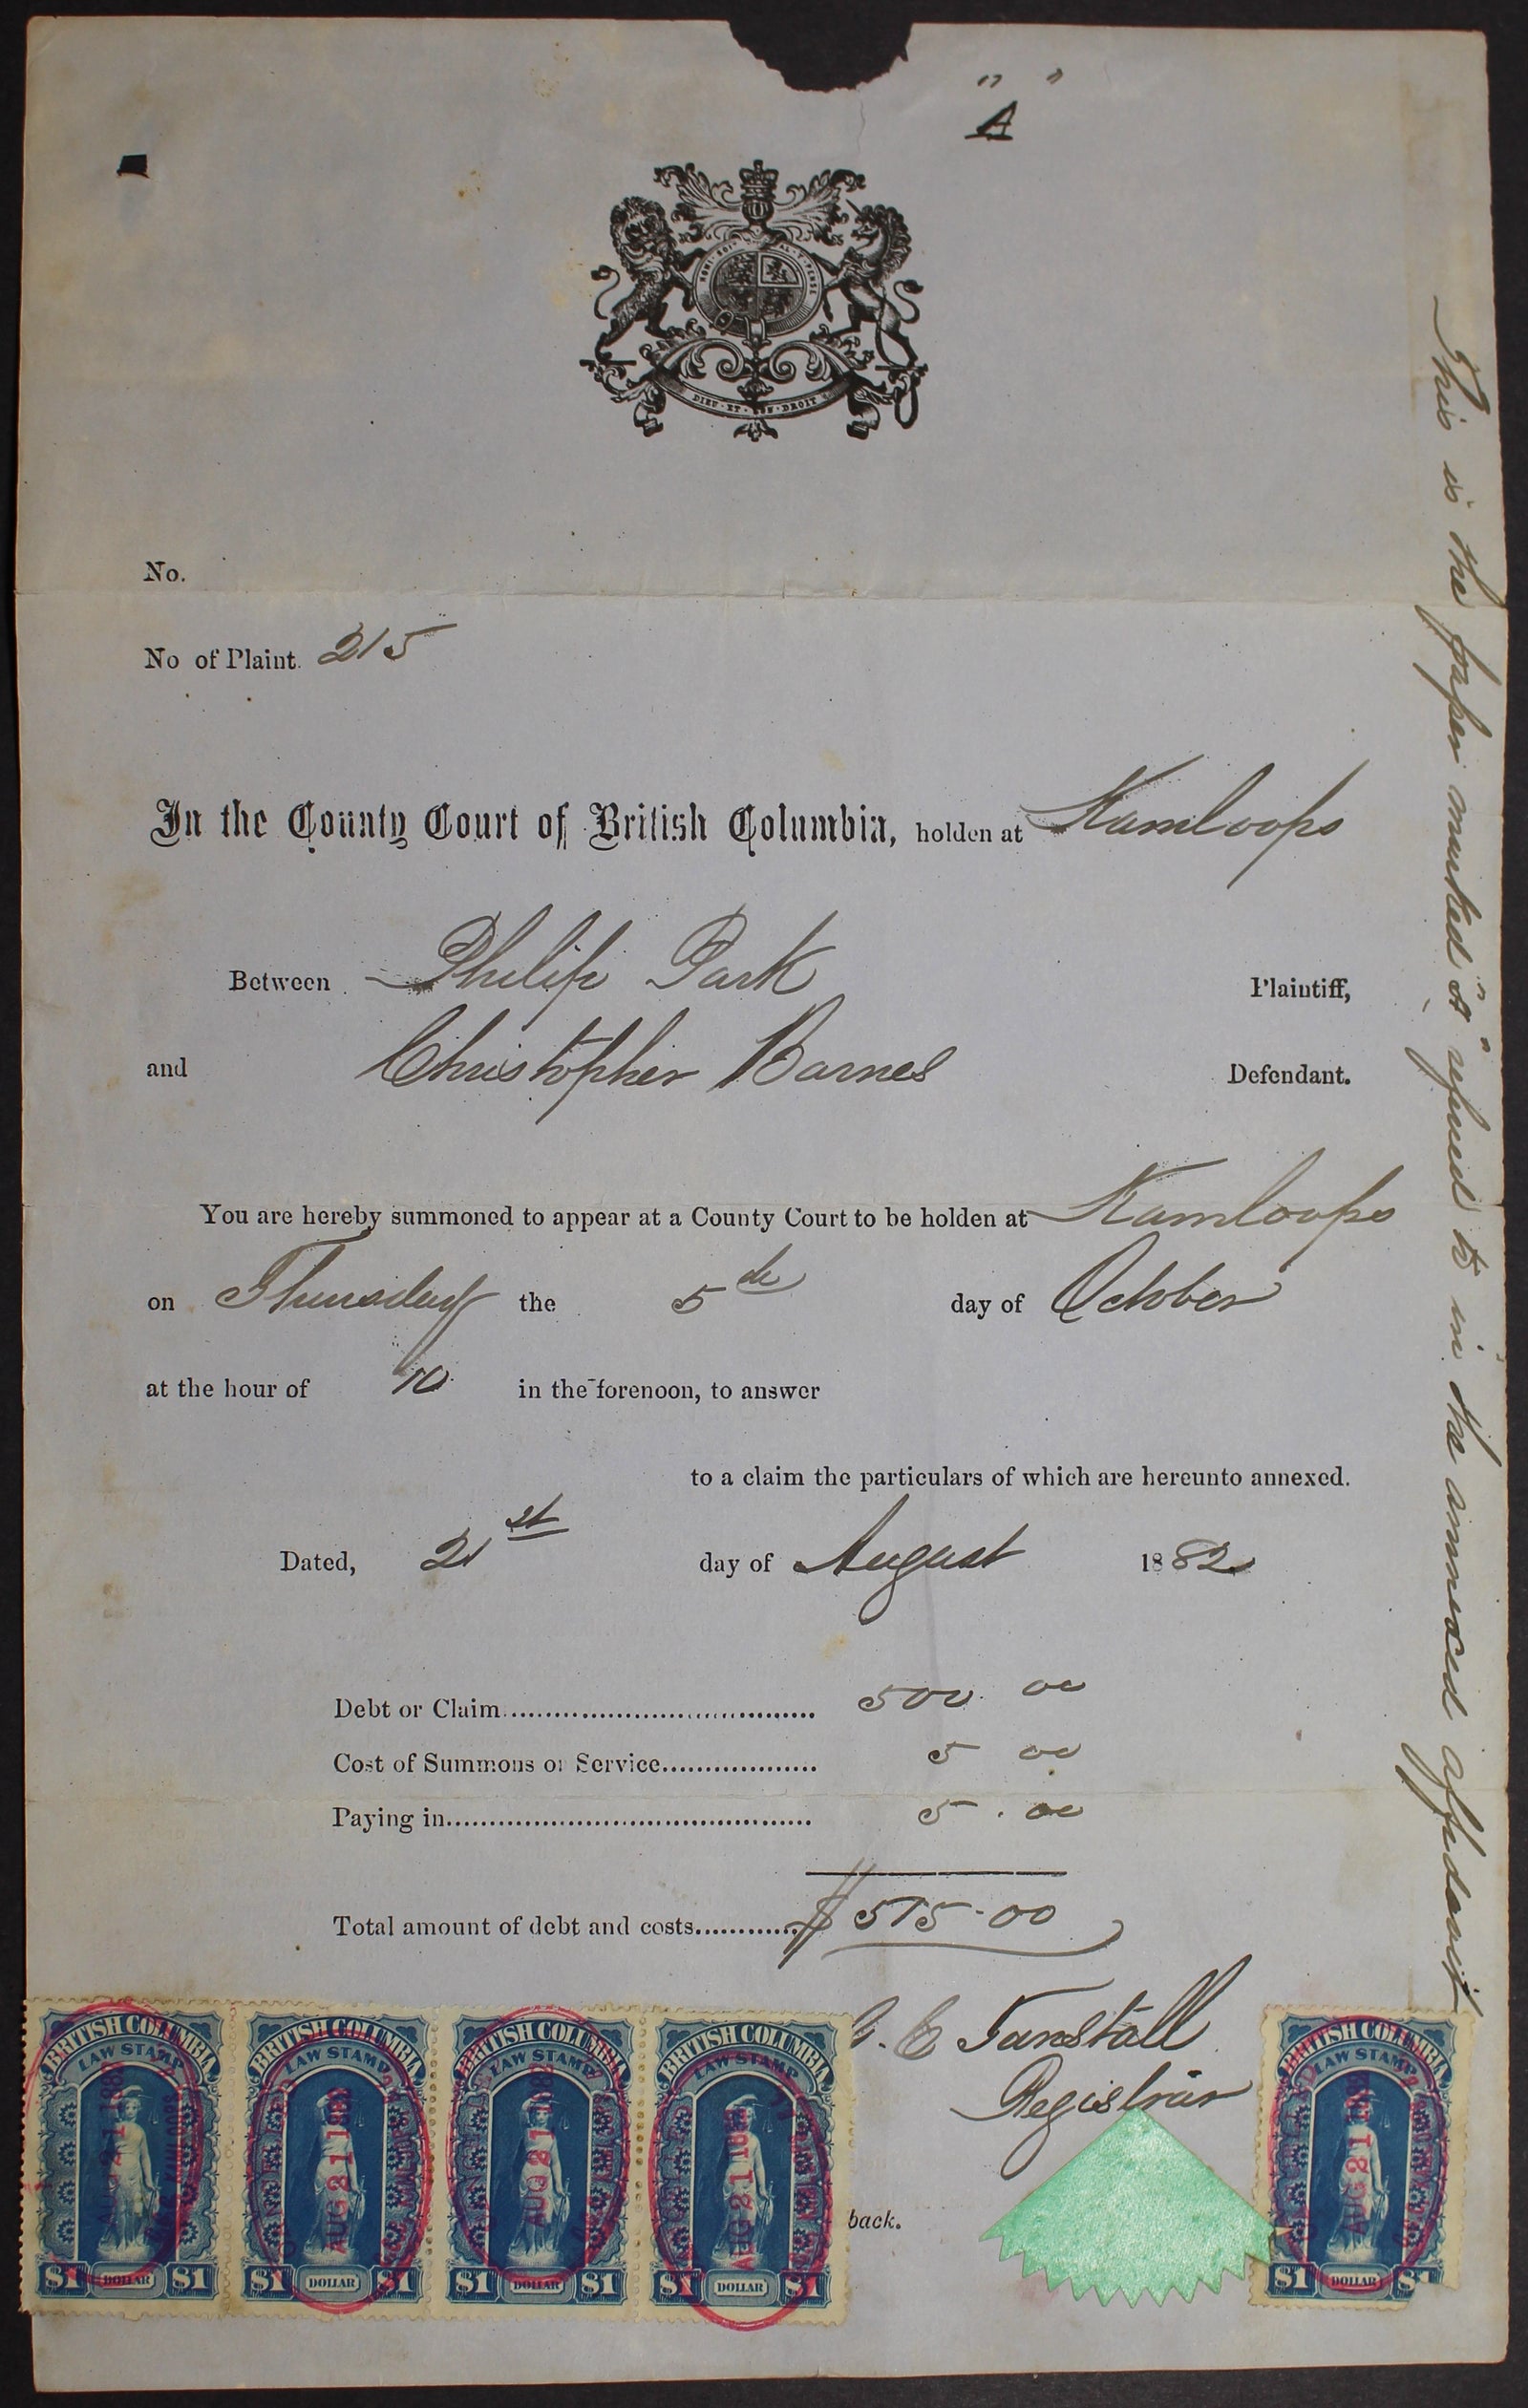 " "
A
HONI SOIT QUI MAL Y PENSE
DIEU·ET·MON·DROIT
No.
No of Plaint. 215
In the County Court of British Columbia, holden at Kamloops
Between Philip Park Plaintiff,
and Christopher Barnes Defendant.
You are hereby summoned to appear at a County Court to be holden at Kamloops
on Thursday the 5th day of October
at the hour of 10 in the forenoon, to answer
to a claim the particulars of which are hereunto annexed.
Dated, 21st day of August 1882
Debt or Claim 500.00
Cost of Summons or Service 5 00
Paying in 5.00
Total amount of debt and costs $515.00
G. C. Tunstall
Registrar
back.
BRITISH COLUMBIA LAW STAMP AUG 21 1882 $1 DOLLAR $1
BRITISH COLUMBIA LAW STAMP AUG 21 1882 $1 DOLLAR $1
BRITISH COLUMBIA LAW STAMP AUG 21 1882 $1 DOLLAR $1
BRITISH COLUMBIA LAW STAMP AUG 21 1882 $1 DOLLAR $1
BRITISH COLUMBIA LAW STAMP AUG 21 1882 $1 DOLLAR $1
This is the paper marked "A" refered to in the annexed affidavit